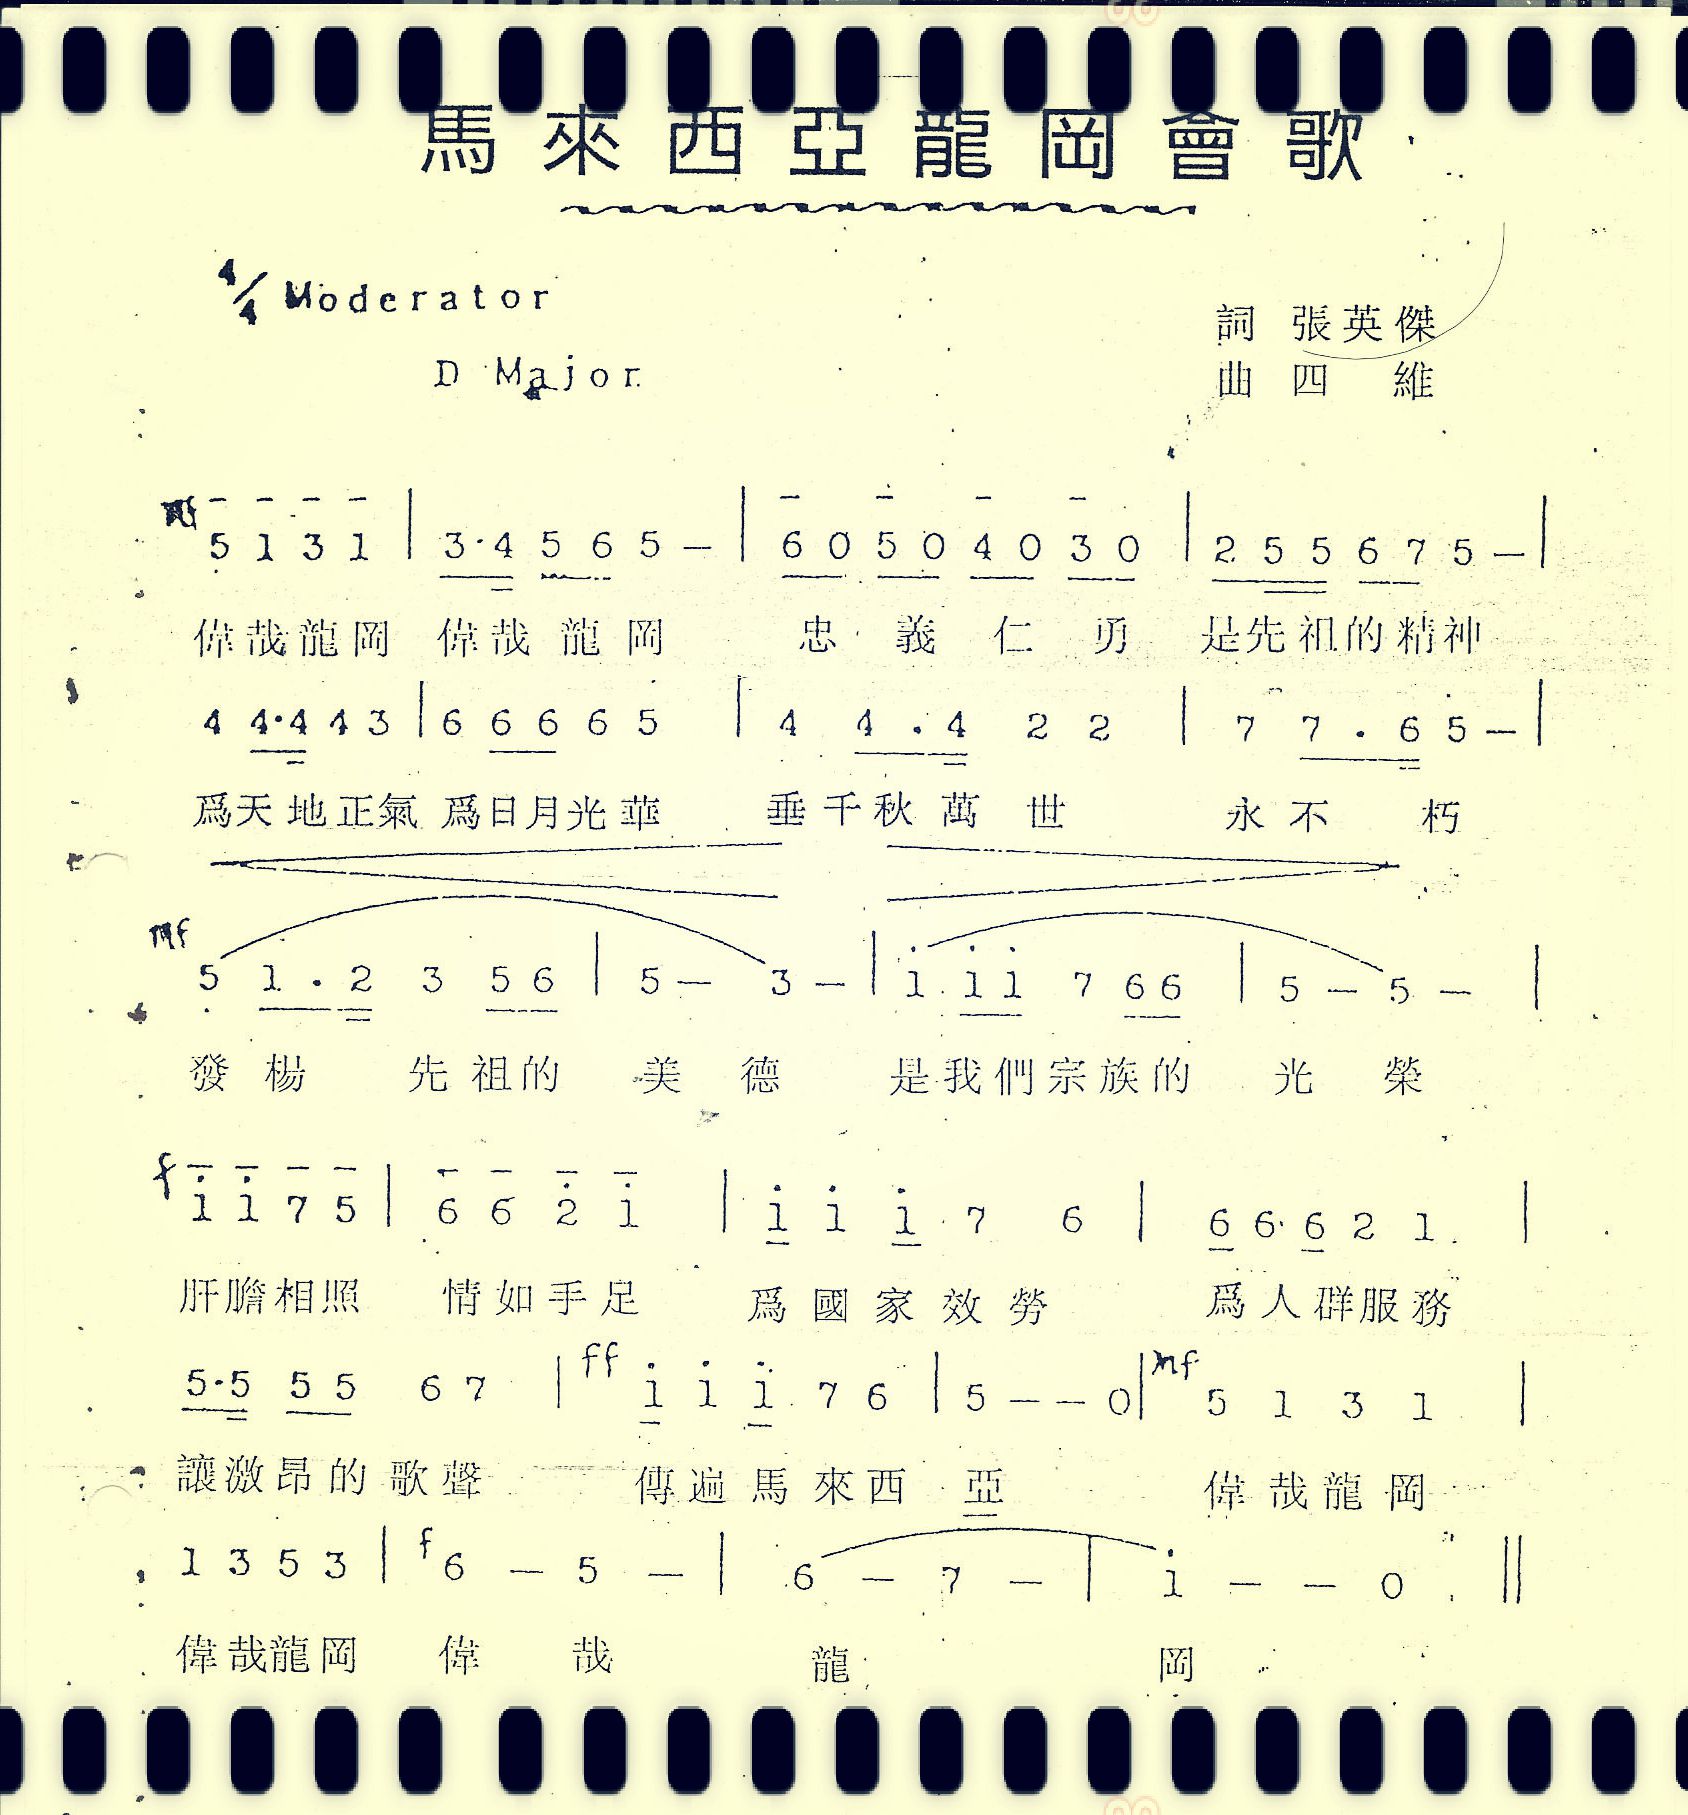 馬來西亞龍岡會歌
4/4 Moderator
D Major
詞 張英傑
曲 四 維
mf 5 1 3 1 | 3·4 5 6 5 — | 6 0 5 0 4 0 3 0 | 2 5 5 6 7 5 — |
偉哉龍岡 偉哉龍岡 忠義仁勇 是先祖的精神
4 4·4 4 3 | 6 6 6 6 5 | 4 4·4 2 2 | 7 7·6 5 — |
爲天地正氣 爲日月光華 垂千秋萬世 永不朽
mf 5 1·2 3 5 6 | 5 — 3 — | i i i 7 6 6 | 5 — 5 — |
發楊 先祖的 美德 是我們宗族的 光榮
f i i 7 5 | 6 6 2̇ i | i i i 7 6 | 6 6·6 2 1 |
肝膽相照 情如手足 爲國家效勞 爲人群服務
5·5 5 5 6 7 | ff i i i 7 6 | 5 — — 0 | mf 5 1 3 1 |
讓激昂的歌聲 傳遍馬來西亞 偉哉龍岡
1 3 5 3 | f 6 — 5 — | 6 — 7 — | i — — 0 ||
偉哉龍岡 偉哉龍岡